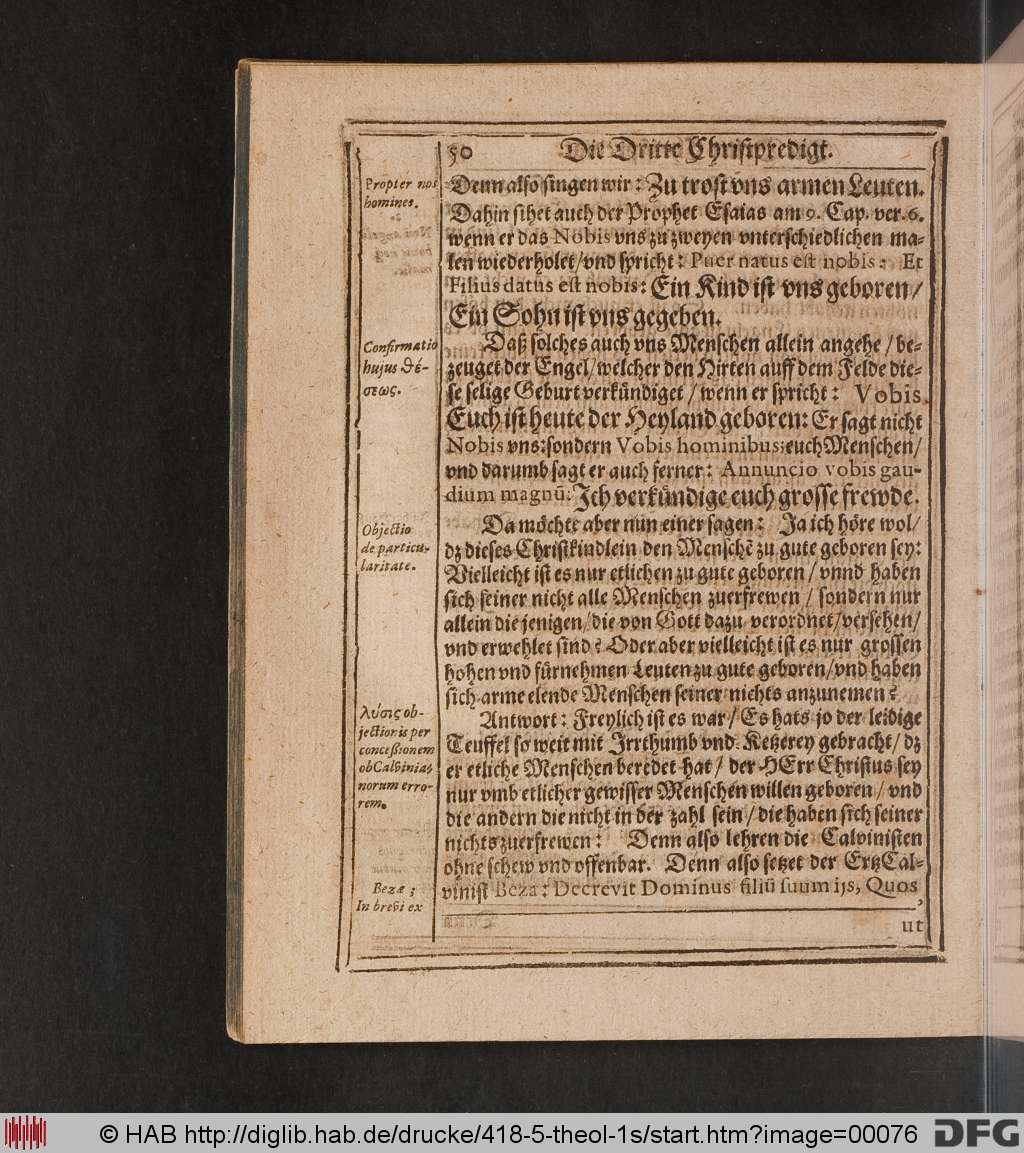 50 Die Dritte Christpredigt.
Propter nos
homines.
Denn also singen wir: Zu trost vns armen Leuten.
Dahin sihet auch der Prophet Esaias am 9. Cap. ver. 6.
wenn er das Nobis vns zu zweyen vnterschiedlichen ma-
len wiederholet/vnd spricht: Puer natus est nobis: Et
Filius datus est nobis: Ein Kind ist vns geboren/
Ein Sohn ist vns gegeben.
Confirmatio
hujus θέ-
σεως.
Daß solches auch vns Menschen allein angehe/be-
zeuget der Engel/welcher den Hirten auff dem Felde die-
se selige Geburt verkündiget/wenn er spricht: Vobis.
Euch ist heute der Heyland geboren: Er sagt nicht
Nobis vns: sondern Vobis hominibus: euch Menschen/
vnd darumb sagt er auch ferner: Annuncio vobis gau-
dium magnū: Ich verkündige euch grosse frewde.
Objectio
de particu-
laritate.
Da möchte aber nun einer sagen: Ja ich höre wol/
dz dieses Christkindlein den Menschē zu gute geboren sey:
Vielleicht ist es nur etlichen zu gute geboren/vnnd haben
sich seiner nicht alle Menschen zuerfrewen/sondern nur
allein die jenigen/die von Gott dazu verordnet/versehen/
vnd erwehlet sind? Oder aber vielleicht ist es nur grossen
hohen vnd fürnehmen Leuten zu gute geboren/vnd haben
sich arme elende Menschen seiner nichts anzunemen?
λύσις ob-
jectionis per
conceßionem
ob Calvinia-
norum erro-
rem.
Antwort: Freylich ist es war/Es hats jo der leidige
Teuffel so weit mit Irrthumb vnd Ketzerey gebracht/dz
er etliche Menschen beredet hat/der HErr Christus sey
nur vmb etlicher gewisser Menschen willen geboren/vnd
die andern die nicht in der zahl sein/die haben sich seiner
nichts zuerfrewen: Denn also lehren die Calvinisten
ohne schew vnd offenbar. Denn also setzet der ErtzCal-
vinist Beza: Decrevit Dominus filiū suum ijs, Quos
Bezæ;
In brevi ex
ut
© HAB http://diglib.hab.de/drucke/418-5-theol-1s/start.htm?image=00076
DFG